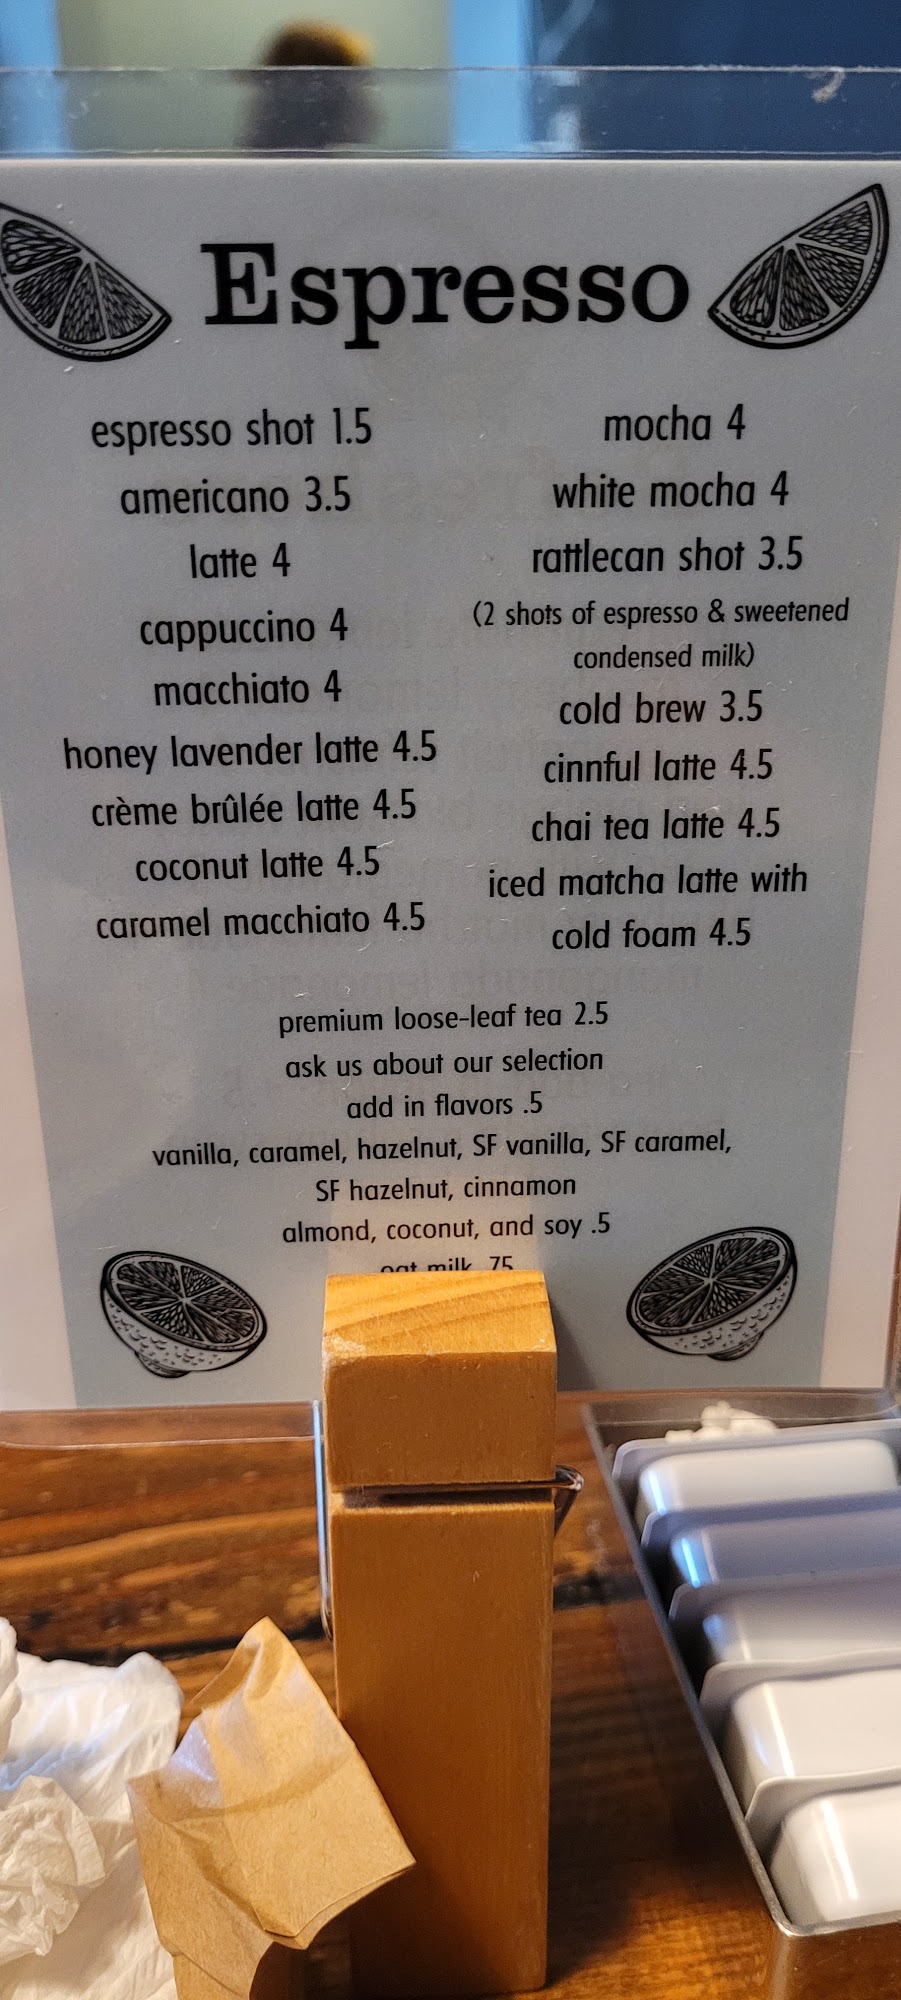 Espresso
espresso shot 1.5
americano 3.5
latte 4
cappuccino 4
macchiato 4
honey lavender latte 4.5
crème brûlée latte 4.5
coconut latte 4.5
caramel macchiato 4.5
mocha 4
white mocha 4
rattlecan shot 3.5
(2 shots of espresso & sweetened
condensed milk)
cold brew 3.5
cinnful latte 4.5
chai tea latte 4.5
iced matcha latte with
cold foam 4.5
premium loose-leaf tea 2.5
ask us about our selection
add in flavors .5
vanilla, caramel, hazelnut, SF vanilla, SF caramel,
SF hazelnut, cinnamon
almond, coconut, and soy .5
oat milk .75